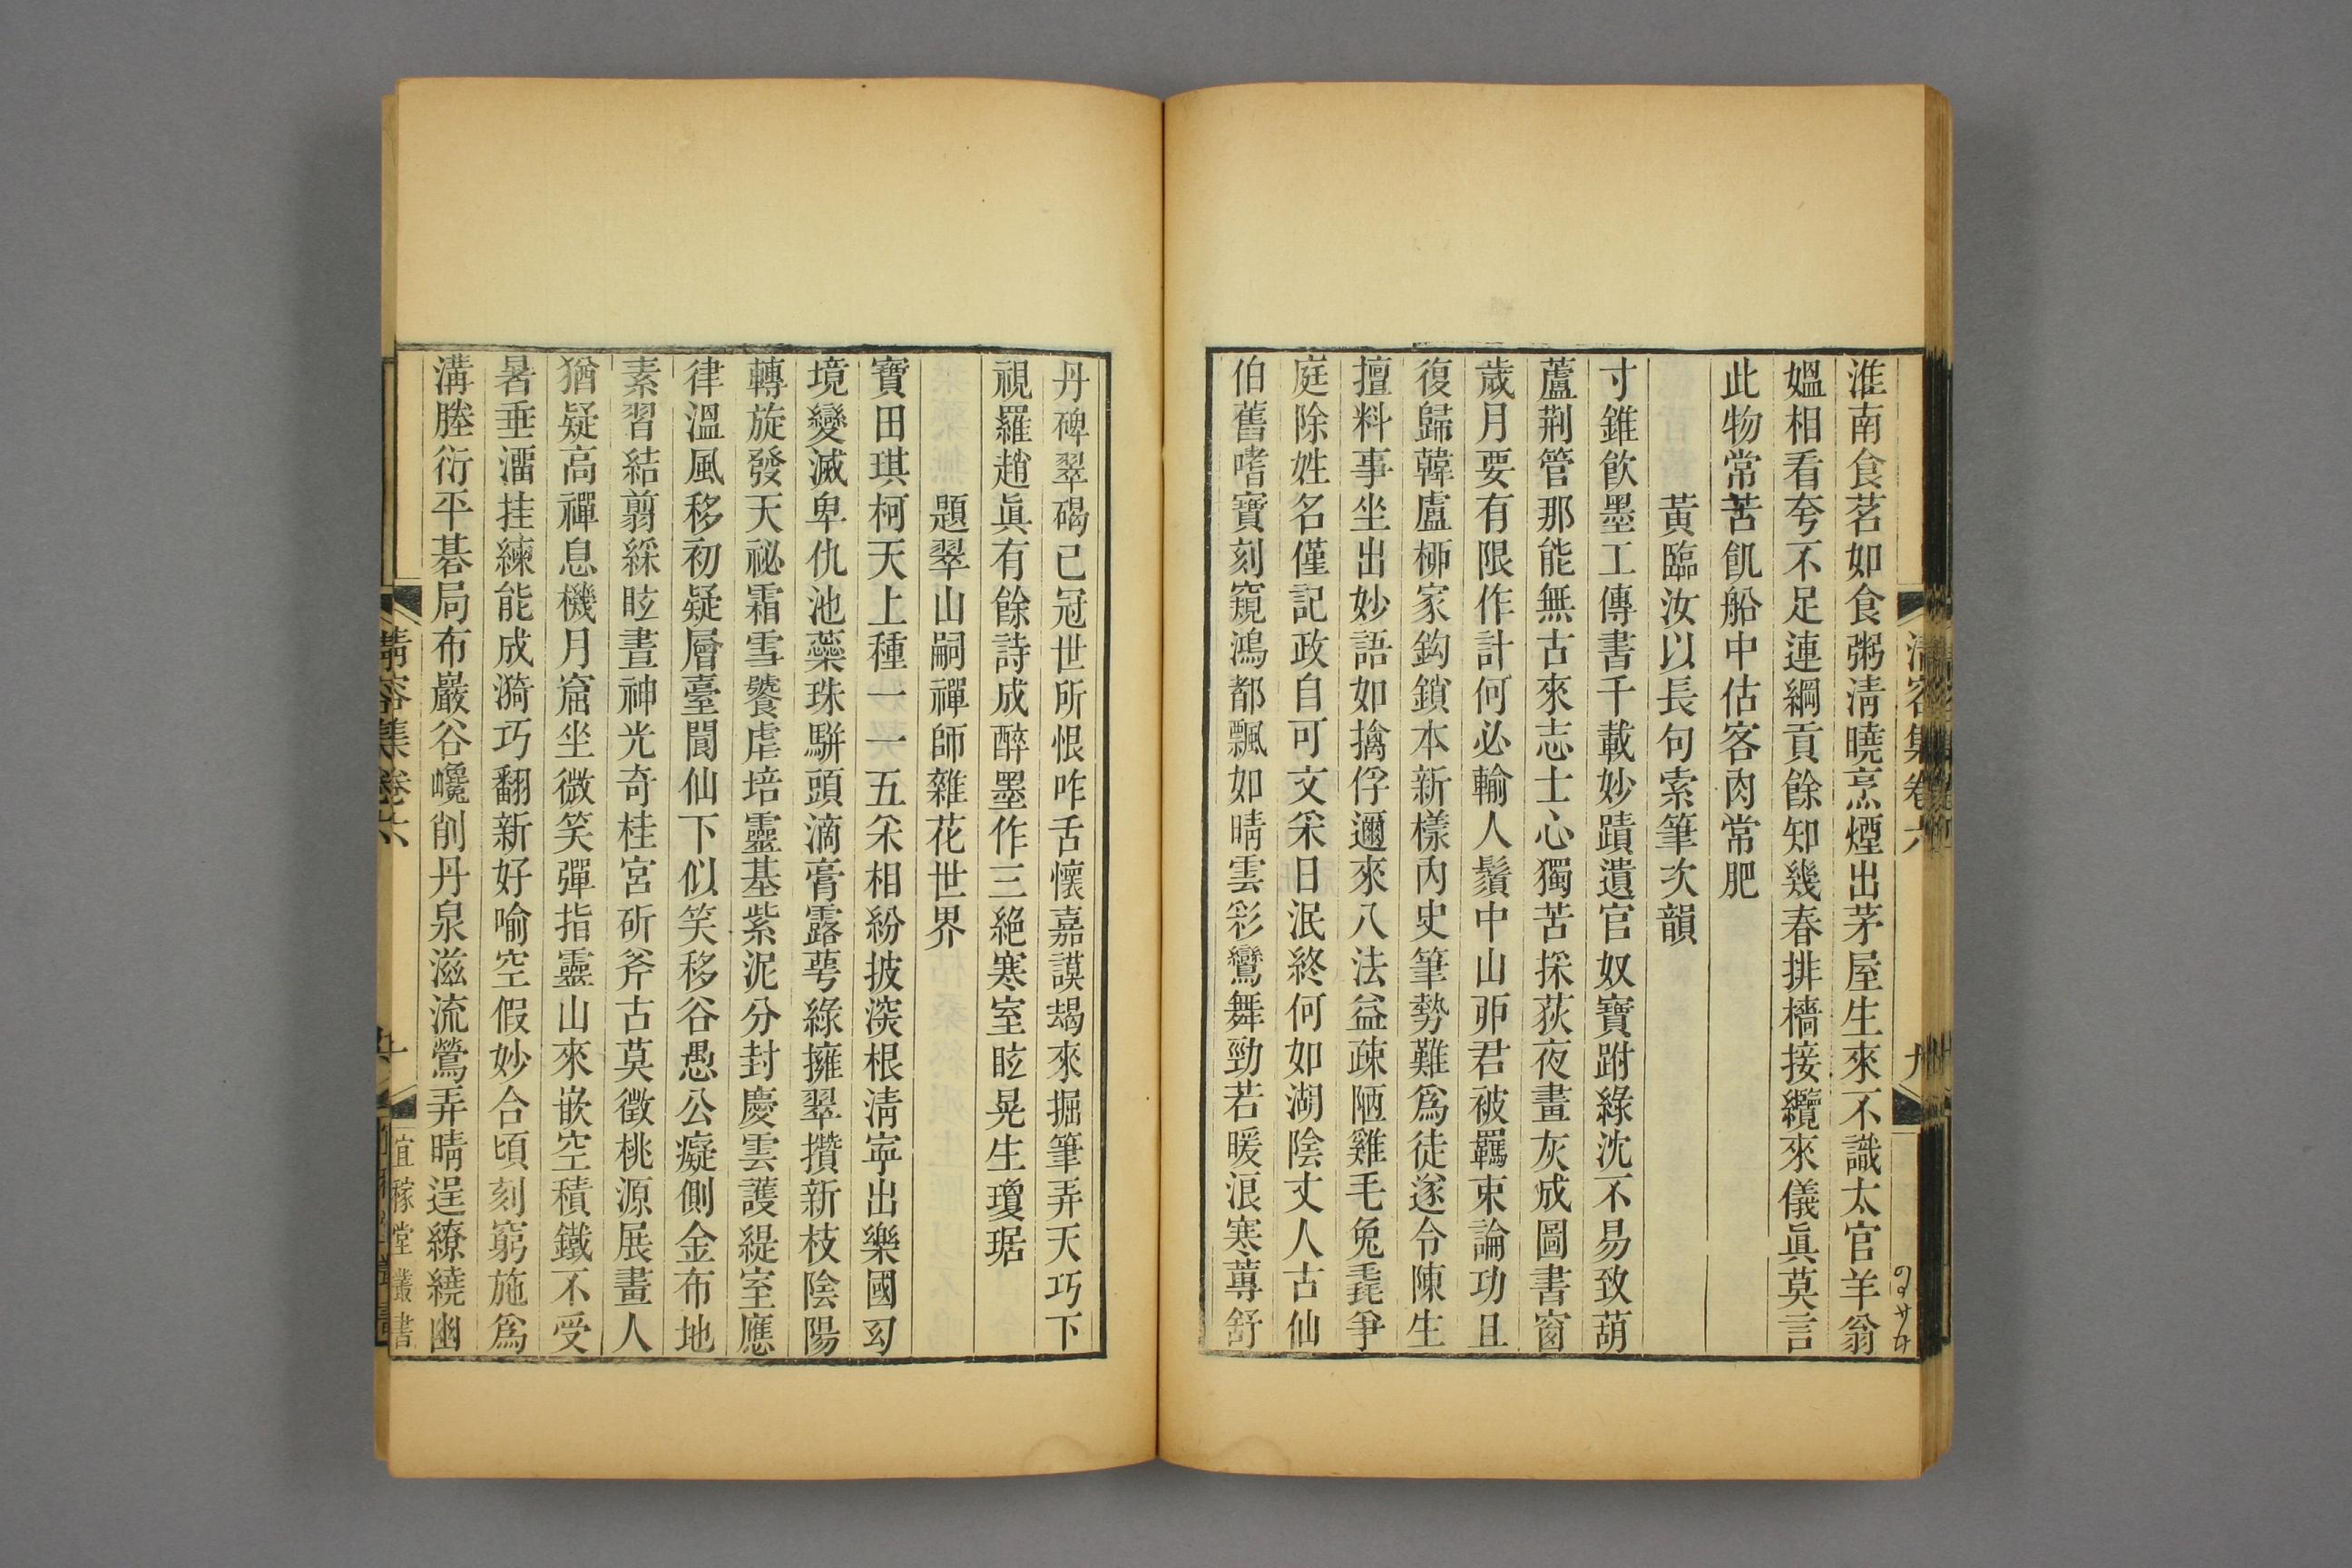 淮南食茗如食粥淸曉烹煙出茅屋生來不識太官羊翁
媼相看夸不足連綱貢餘知幾春排檣接纜來儀眞莫言
此物常苦飢船中估客肉常肥
黃臨汝以長句索筆次韻
寸錐飮墨工傳書千載妙蹟遺官奴寶跗綠沈不易致葫
蘆荆管那能無古來志士心獨苦採荻夜畫灰成圖書窗
歲月要有限作計何必輸人鬚中山夘君被羈束論功且
復歸韓盧栁家鈎鎖本新樣內史筆勢難爲徒遂令陳生
擅料事坐出妙語如擒俘邇來八法益疎陋雞毛兔毳爭
庭除姓名僅記政自可文采日泯終何如湖陰丈人古仙
伯舊嗜寶刻窺鴻都飄如晴雲彩鸞舞勁若暖浪寒蓴舒
丹碑翠碣已冠世所恨咋舌懷嘉謨朅來掘筆弄天巧下
視羅趙眞有餘詩成醉墨作三絕寒室眩晃生瓊琚
題翠山嗣禪師雜花世界
寶田琪柯天上種一一五采相紛披深根淸寧出樂國幻
境變滅卑仇池藥珠駢頭滴膏露萼綠擁翠攢新枝陰陽
轉旋發天祕霜雪饕虐培靈基紫泥分封慶雲護緹室應
律溫風移初疑層臺閬仙下似笑移谷愚公癡側金布地
素習結翦綵眩晝神光奇桂宮斫斧古莫徵桃源展畫人
猶疑高禪息機月窟坐微笑彈指靈山來嵌空積鐵不受
暑垂霤挂練能成漪巧翻新好喻空假妙合頃刻窮施爲
溝塍衍平棊局布巖谷巉削丹泉滋流鶯弄晴逞繚繞幽
淸容集卷六
九
淸容集卷六
十
宜稼堂叢書